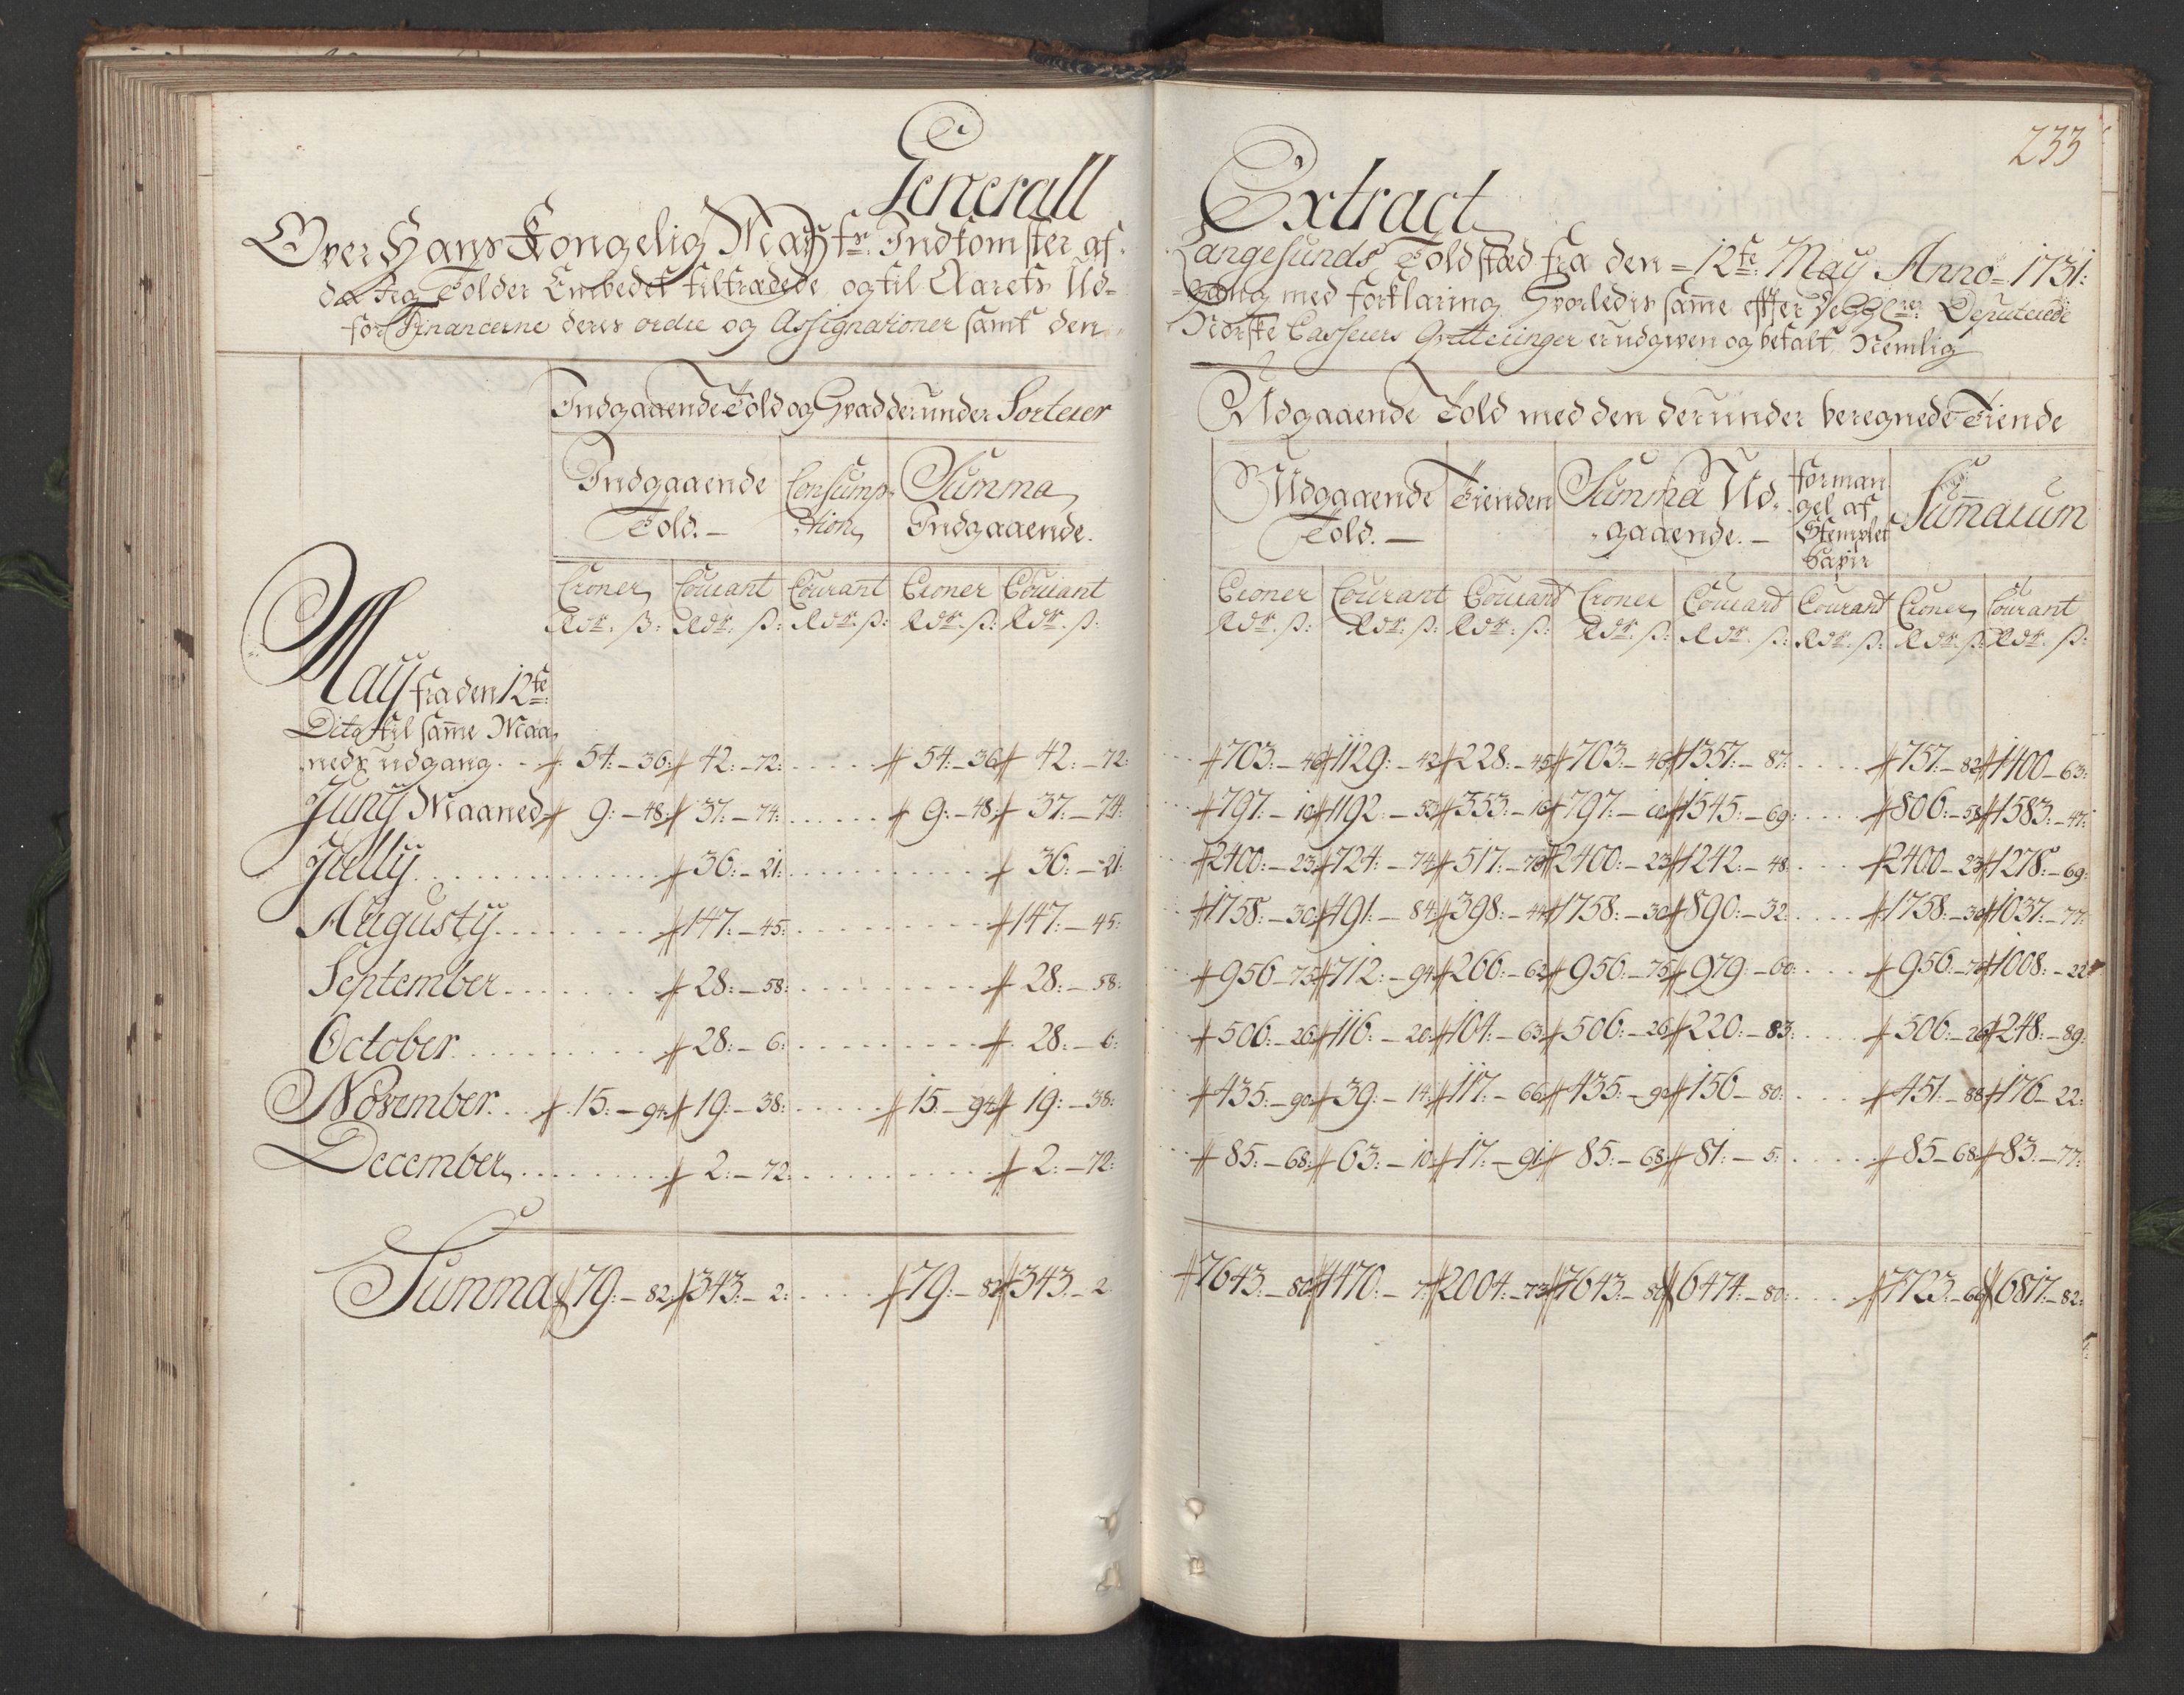 233
Generall Extract
Over Hans Kongelig Mayts. Indkomster af Langesunds Toldstæd fra den 12te May Anno 1731:
da jeg Tolder Embedet tiltrædede og til Aarets Udgang med forklaring hvorledis samme efter
for Financerne deres ordre og Assignationer samt den Norske Casserers Qvitteringer er udgiven og betalt, Nemlig
Indgaaende Told og hvad derunder Sorterer
Udgaaende Told med den derunder beregnede Tiende
Indgaaende Told. Consumption Summa Indgaaende. Udgaaende Told. Tienden Summa Udgaaende. formangel af Stemplet Papir Sumarum
Croner Courant Courant Croner Courant Croner Courant Courant Croner Courant Courant Croner Courant
Rdr. ß: Rdr. ß: Rdr. ß: Rdr. ß: Rdr. ß: Rdr. ß: Rdr. ß: Rdr. ß: Rdr. ß: Rdr. ß: Rdr. ß: Rdr. ß: Rdr. ß:
May fra den 12te
Dito til samme Maa
neds udgang 54:-36: 42:-72: 54:-36 42:-72: 703:-46 1129:-42 228:-45 703:-46 1357:-87: 757:-82 1400-63:
Juny Maaned 9:-48: 37:-74: 9:-48: 37:-74: 797:-10 1192:-53 353:-16 797:-10 1545:-69: 806:-58 1583:-47:
Jully 36:-21: 36:-21: 2400:-23 724:-74 517:-70 2400:-23 1242:-48: 2400-23 1278:-69:
Augusty 147:-45: 147:-45: 1758:-30 491:-84 398:-44 1758:-30 890:-32: 1758:-30 1037:-77:
September 28:-58: 28:-58: 956-75 712:-94 266:-62 956:-75 979-60: 956:-75 1008:-22
October 28:-6: 28:-6: 506:-26 116:-20 104:-63 506:-26 220:-83: 506:-26 248:-89:
November 15:-94 19:-38: 15-94 19:-38: 435:-90 39:-14 117:-66 435:-90 156-80: 451:-88 176-22:
December 2:-72: 2:-72: 85:-68: 63:-10 17:-91 85:-68 81:-5: 85-68 83:-77:
Summa 79:-82 343-2: 79:-82 343-2 7643-80 4470-7 2004:-73 7643-80 6474-80: 7723-66 6817:-82: